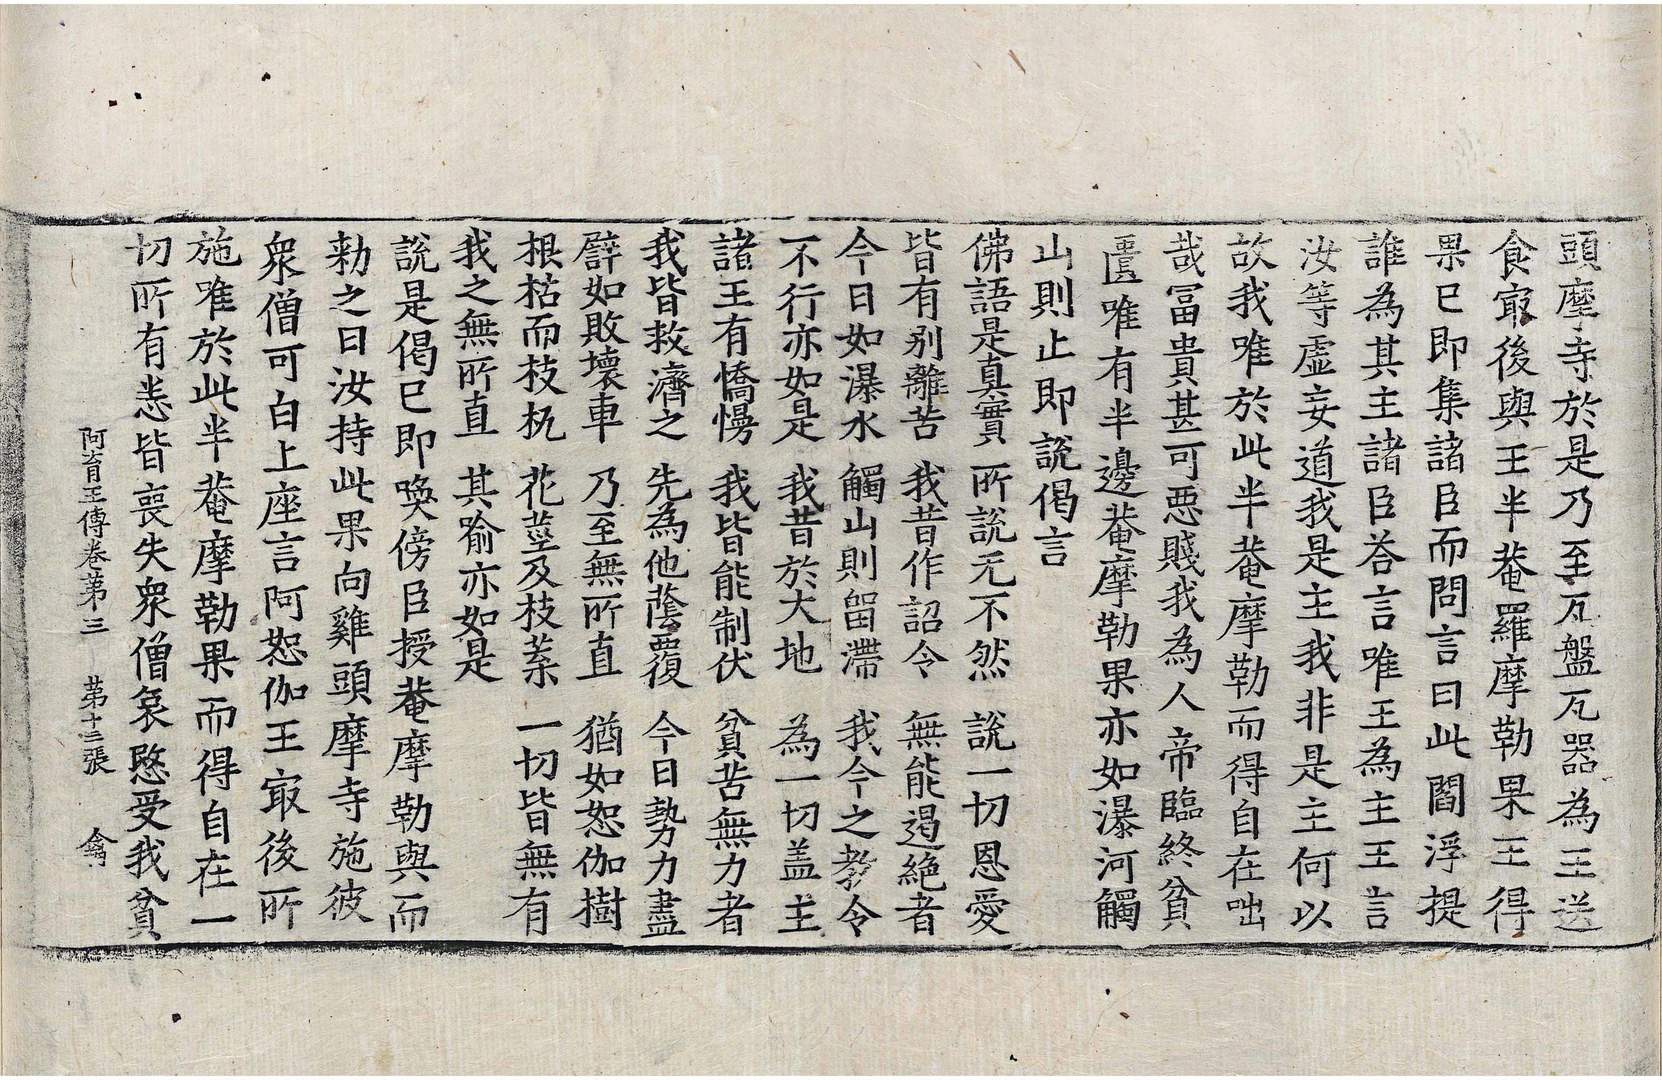 頭摩寺於是乃至瓦盤瓦器為王送
食冣後與王半菴羅摩勒果王得
果已即集諸臣而問言曰此閻浮提
誰為其主諸臣荅言唯王為主王言
汝等虛妄道我是主我非是主何以
故我唯於此半菴摩勒而得自在咄
哉冨貴甚可惡賤我為人帝臨終貧
匱唯有半邊菴摩勒果亦如瀑河觸
山則止即說偈言
佛語是真實 所說无不然 說一切恩愛
皆有別離苦 我昔作詔令 無能遏絶者
今日如瀑水 觸山則留滯 我今之教令
不行亦如是 我昔於大地 為一切盖主
諸王有憍慢 我皆能制伏 貧苦無力者
我皆救濟之 先為他蔭覆 今日勢力盡
譬如敗壞車 乃至無所直 猶如恕伽樹
根枯而枝朽 花莖及枝葉 一切皆無有
我之無所直 其喻亦如是
說是偈已即喚傍臣授菴摩勒與而
勑之曰汝持此果向雞頭摩寺施彼
衆僧可白上座言阿恕伽王冣後所
施唯於此半菴摩勒果而得自在一
切所有悉皆喪失衆僧哀愍受我貧
阿育王傳卷第三 第十三張